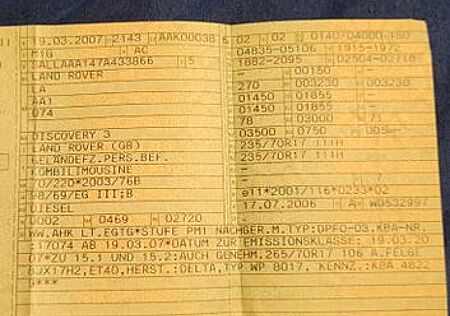 19.03.2007 2143 AAK00038 6
M1G AC
SALLAAA147A433866 5
LAND ROVER
LA
AA1
074
DISCOVERY 3
LAND ROVER (GB)
GELÄNDEFZ.PERS.BEF.
KOMBILIMOUSINE
70/220*2003/76B
98/69/EG III;B
DIESEL
0002 0469 02720
02 02 0140/04000 180
04835-05106 1915-1972
1882-2095 02504-02718
- 00150 -
270 003230 003230
01450 01855 -
01450 01855 -
78 03000 71
03500 0750
235/70R17 111H
235/70R17 111H
-
-
- 7
e11*2001/116*0233*02
17.07.2006 A WD532997
WW.AHK LT.EGTG*STUFE PM1 NACHGER.M.TYP:DPFO-03,KBA-NR.
:17074 AB 19.03.07*DATUM ZUR EMISSIONSKLASSE: 19.03.20
07*ZU 15.1 UND 15.2:AUCH GENEHM.265/70R17 106 A.FELGE
8JX17H2,ET40,HERST.:DELTA,TYP WP 8017, KENNZ.:KBA 4622
***